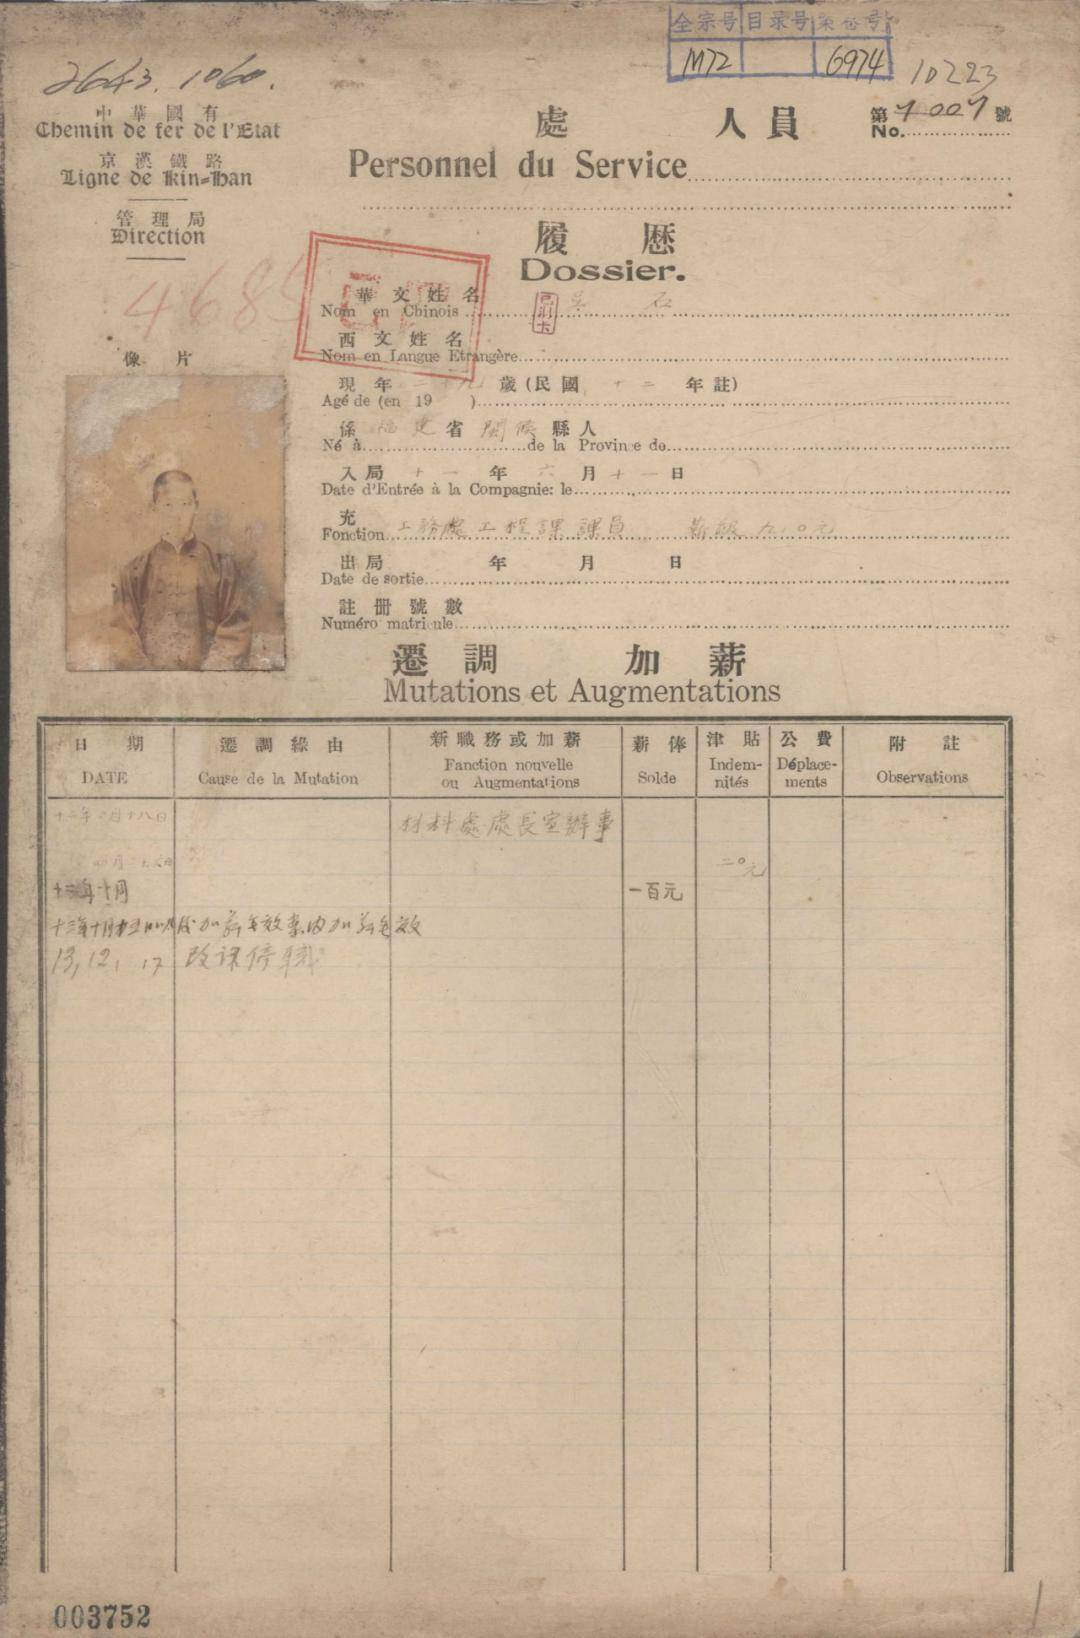 全宗号 目录号 案卷号
M72 6974
10223
2643. 1060.
中華國有
Chemin de fer de l'Etat
京漢鐵路
Ligne de Kin=Han
管理局
Direction
處 人員
Personnel du Service
第 7007 號
No.
履歷
Dossier.
華文姓名 吳 石
Nom en Chinois
已製卡
西文姓名
Nom en Langue Etrangère
像片
現年二十九歲(民國十二年註)
Agé de (en 19 )
係福建省閩侯縣人
Né à de la Province de
入局十一年六月十一日
Date d'Entrée à la Compagnie: le
充 工務處工程課課員 薪級九〇元
Fonction
出局 年 月 日
Date de sortie
註冊號數
Numéro matricule
遷調 加薪
Mutations et Augmentations
日期 遷調緣由 新職務或加薪 薪俸 津貼 公費 附註
DATE Cause de la Mutation Fanction nouvelle ou Augmentations Solde Indem-nités Déplace-ments Observations
材料處處長室辦事
二〇元
十三年十月 一百元
13, 12, 17 改課停職
003752
1